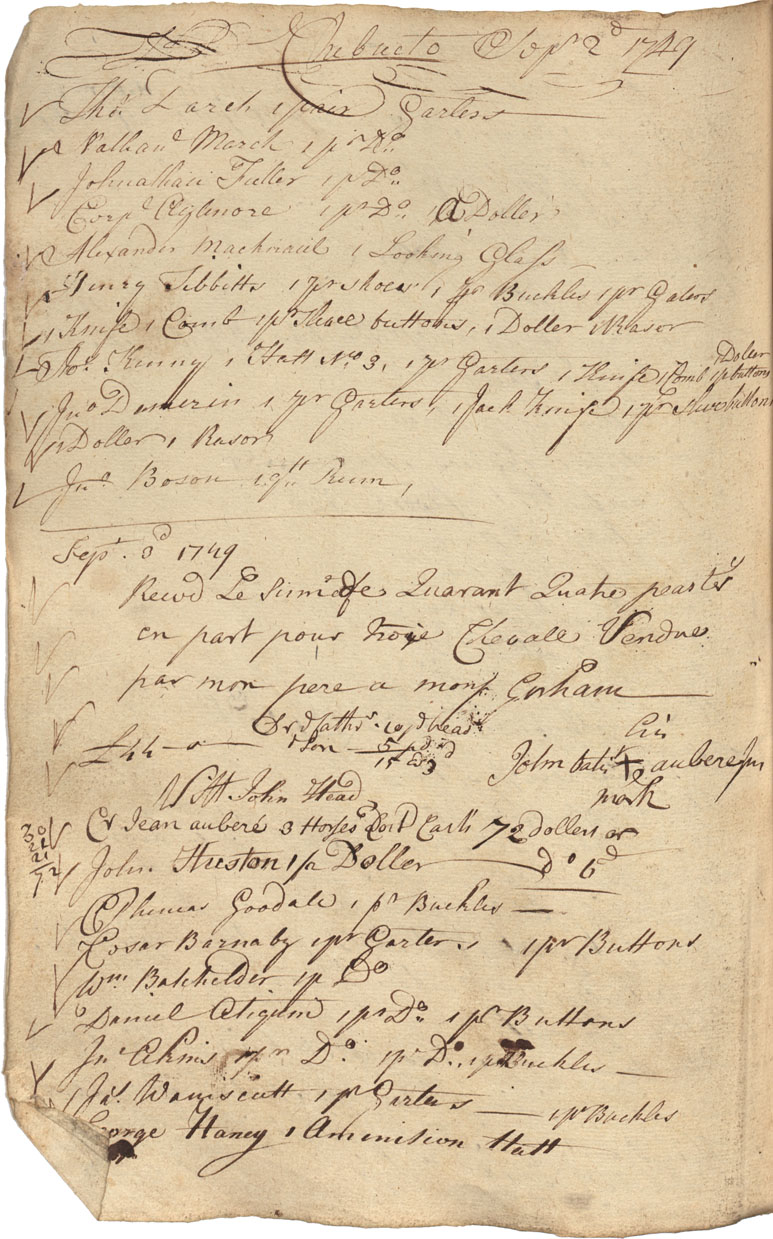 Chebucto Sepr 2d 1749
Thos Larch 1 pair Garters
March 1 pr Do
Johnathan Fuller 1 pr Do
Corpl Aylmore 1 pr Do 1 Doller
Alexander 1 Looking Glass
Henry Tibbitts 1 pr shoes, 1 pr Buckles 1 pr Gaters
1 Knife 1 Comb 1 pr buttons, 1 Doller 1 Rasor
Doller
Jos. Kinny 1 Hatt No 3, 1 pr Garters 1 Knife 1 Comb 1 pr buttons
Jno 1 pr Garters, 1 Jack Knife 1 pr buttons
1 Doller 1 Rasor
Jno Boson 1 qt Rum,
Sept. 3d 1749
Recvd Le Sum de Quarant Quatre
en part pour Chevale Vendue
par mon pere a monsr Gorham
£44
his
John + aubere Jun
mark
Witt John Head
30
21
72
Cr Jean auberé 3 Horses Cash 72 Dollers or
John Huston 1 pr Doller Do 6d
Ephemas Goodale 1 pr Buckles
Cesar Barnaby 1 pr Garters 1 pr Buttons
Wm Bakhelder 1 p Do
Daniel 1 pr Do 1 pr Buttons
Jno Akins 1 pr Do 1 pr Do 1 pr Buckles
Jas. Wamscutt 1 pr Garters 1 pr Buckles
George Haney 1 Aminision Hatt